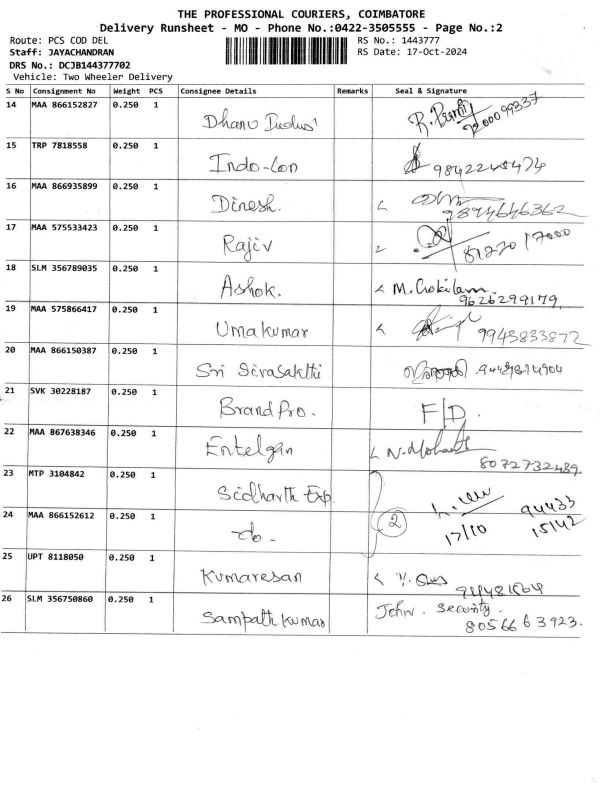 THE PROFESSIONAL COURIERS, COIMBATORE
Delivery Runsheet - MO - Phone No.:0422-3505555 - Page No.:2
Route: PCS COD DEL RS No.: 1443777
Staff: JAYACHANDRAN RS Date: 17-Oct-2024
DRS No.: DCJB144377702
Vehicle: Two Wheeler Delivery
S No Consignment No Weight PCS Consignee Details Remarks Seal & Signature
14 MAA 866152827 0.250 1 Dhanu
15 TRP 7818558 0.250 1 Indo-lon
16 MAA 866935899 0.250 1 Dinesh. 9894646362
17 MAA 575533423 0.250 1 Rajiv 81220 17000
18 SLM 356789035 0.250 1 Ashok. M. Gokilam.
9626299179
19 MAA 575866417 0.250 1 Umakumar 9943833872
20 MAA 866150387 0.250 1 Sri Sivasakthi
21 SVK 30228187 0.250 1 BrandPro. F/D.
22 MAA 867638346 0.250 1 Entelgan N. Mohan
8072732489.
23 MTP 3104842 0.250 1 Sidharth Exp 94433
24 MAA 866152612 0.250 1 -do- 2 17/10 15142
25 UPT 8118050 0.250 1 Kumaresan
26 SLM 356750860 0.250 1 Sampath kumar John. Security.
8056663923.